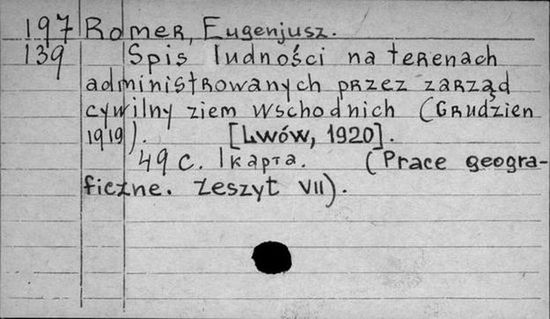 197 Romer, Eugenjusz.
139 Spis ludności na terenach
administrowanych przez zarząd
cywilny ziem wschodnich (Grudzień
1919). [Lwów, 1920].
49 с. 1 карта. (Prace geogra-
ficzne. Zeszyt VII).